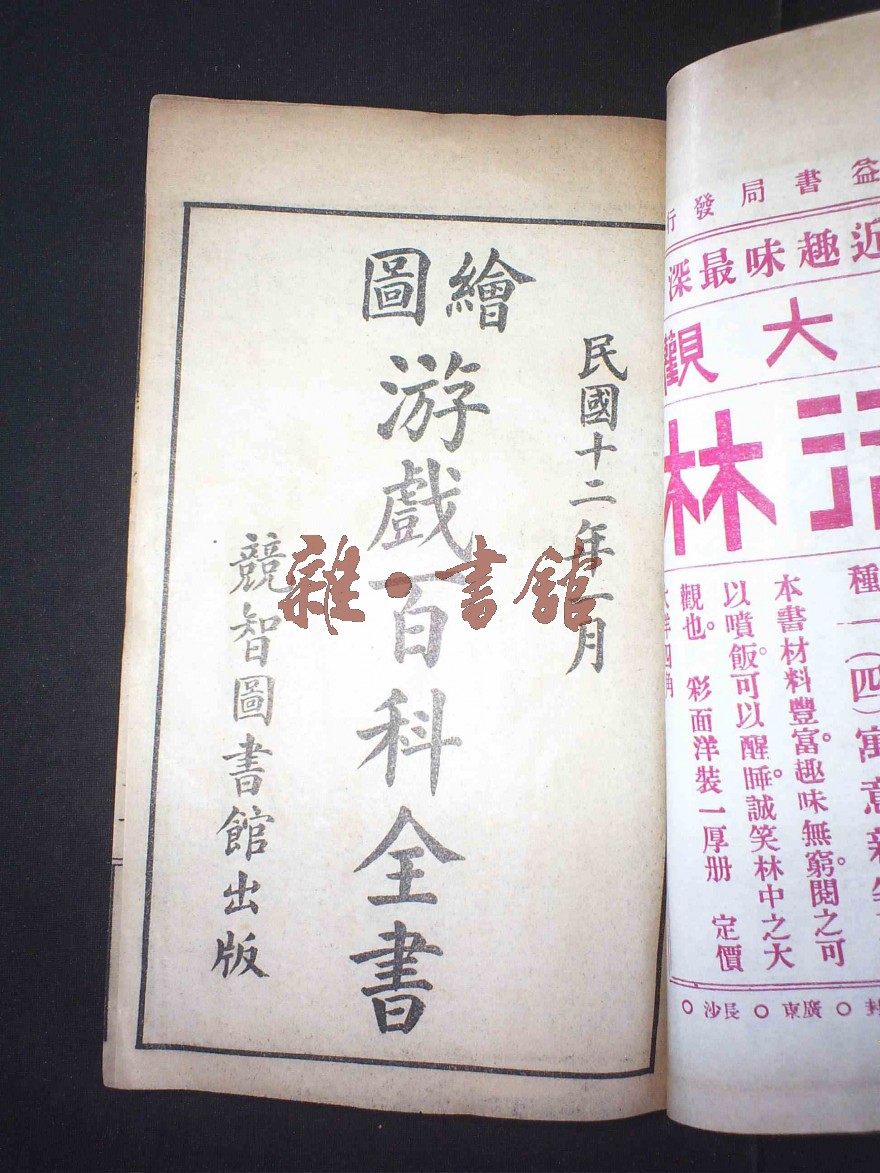 益書局發行
近趣味最深
大觀
林
種一（四）寓意新
本書材料豐富。趣味無窮。閱之可
以噴飯。可以醒睡。誠笑林中之大
觀也。 彩面洋裝一厚册 定價
大洋四角
廣東 ○ 長沙 ○
民國十二年一月
繪圖
游戲百科全書
競智圖書館出版
雜·書館